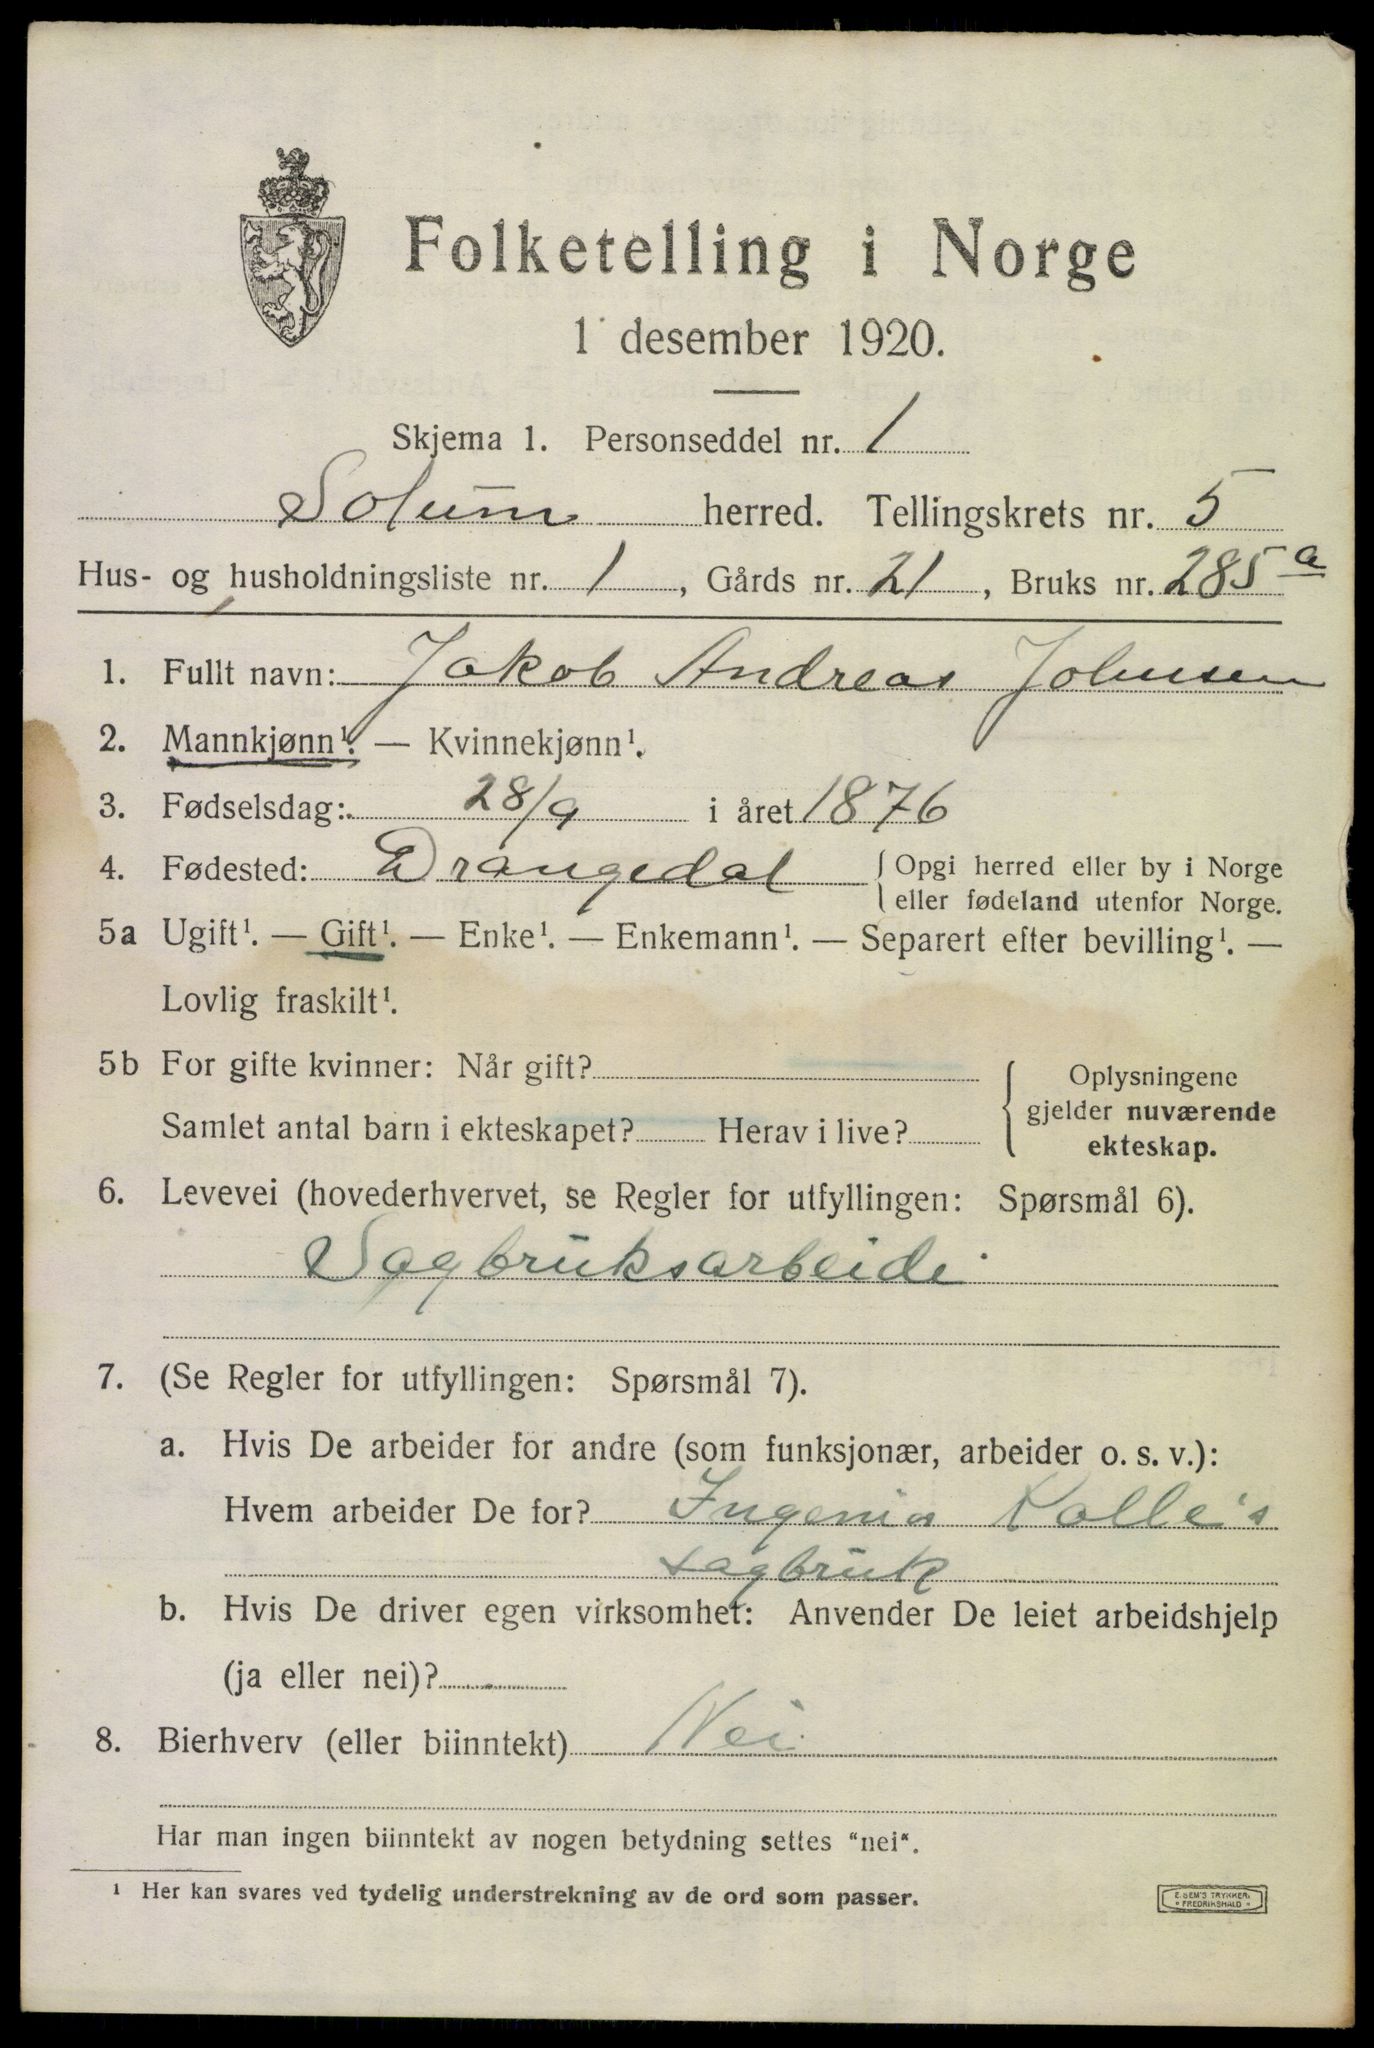 Folketelling i Norge
1 desember 1920.
Skjema 1. Personseddel nr. 1
Solum herred. Tellingskrets nr. 5
Hus- og husholdningsliste nr. 1, Gårds nr. 21, Bruks nr. 285 a
1. Fullt navn: Jakob Andreas Johnsen
2. Mannkjønn¹. — Kvinnekjønn¹.
3. Fødselsdag: 28/9 i året 1876
4. Fødested: Drangedal { Opgi herred eller by i Norge
eller fødeland utenfor Norge.
5a Ugift¹. — Gift¹. — Enke¹. — Enkemann¹. — Separert efter bevilling¹. —
Lovlig fraskilt¹.
5b For gifte kvinner: Når gift?
Samlet antal barn i ekteskapet? Herav i live?
{ Oplysningene
gjelder nuværende
ekteskap.
6. Levevei (hovederhvervet, se Regler for utfyllingen: Spørsmål 6).
Sagbruksarbeide
7. (Se Regler for utfyllingen: Spørsmål 7).
a. Hvis De arbeider for andre (som funksjonær, arbeider o. s. v.):
Hvem arbeider De for? Ingeniør Kolle's
sagbruk
b. Hvis De driver egen virksomhet: Anvender De leiet arbeidshjelp
(ja eller nei)?
8. Bierhverv (eller biinntekt) Nei
Har man ingen biinntekt av nogen betydning settes "nei".
¹ Her kan svares ved tydelig understrekning av de ord som passer.
E. SEM'S TRYKKERI
FREDRIKSHALD